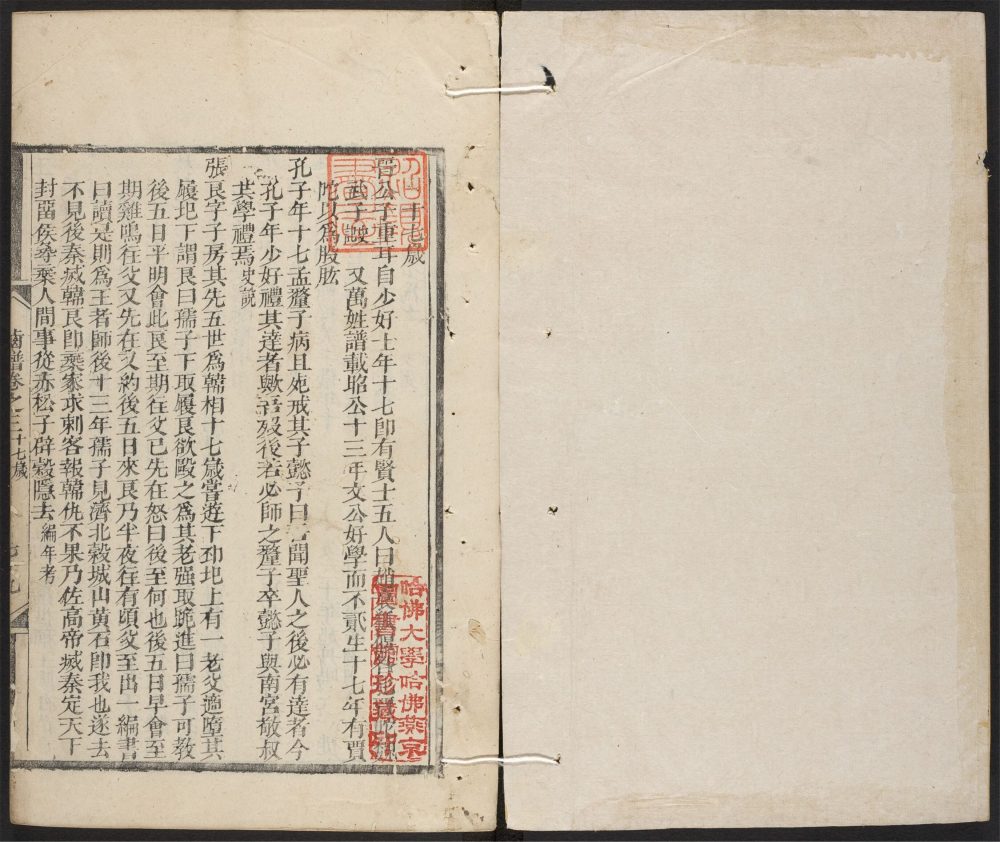 十七歲
晉公子重耳自少好士年十七卽有賢士五人曰趙衰
武子犨又萬姓譜載昭公十三年文公好學而不貳生十七年有賈
佗以爲股肱
孔子年十七孟釐子病且死戒其子懿子曰吾聞聖人之後必有達者今
孔子年少好禮其達者歟吾歿後若必師之釐子卒懿子與南宮敬叔
共學禮焉史說
張良字子房其先五世爲韓相十七歲嘗遊下邳圯上有一老父適墮其
履圯下謂良曰孺子下取履良欲毆之爲其老强取跪進曰孺子可教
後五日平明會此良至期往父已先在怒曰後至何也後五日早會至
期雞鳴往父又先在又約後五日來良乃半夜往有頃父至出一編書
曰讀是則爲王者師後十三年孺子見濟北穀城山黃石卽我也遂去
不見後秦滅韓良卽棄家求刺客報韓仇不果乃佐高帝滅秦定天下
封留侯尋棄人間事從赤松子辟穀隱去編年考
齒譜卷之三十七歲
哈佛大學哈佛燕京
圖書館珍藏印